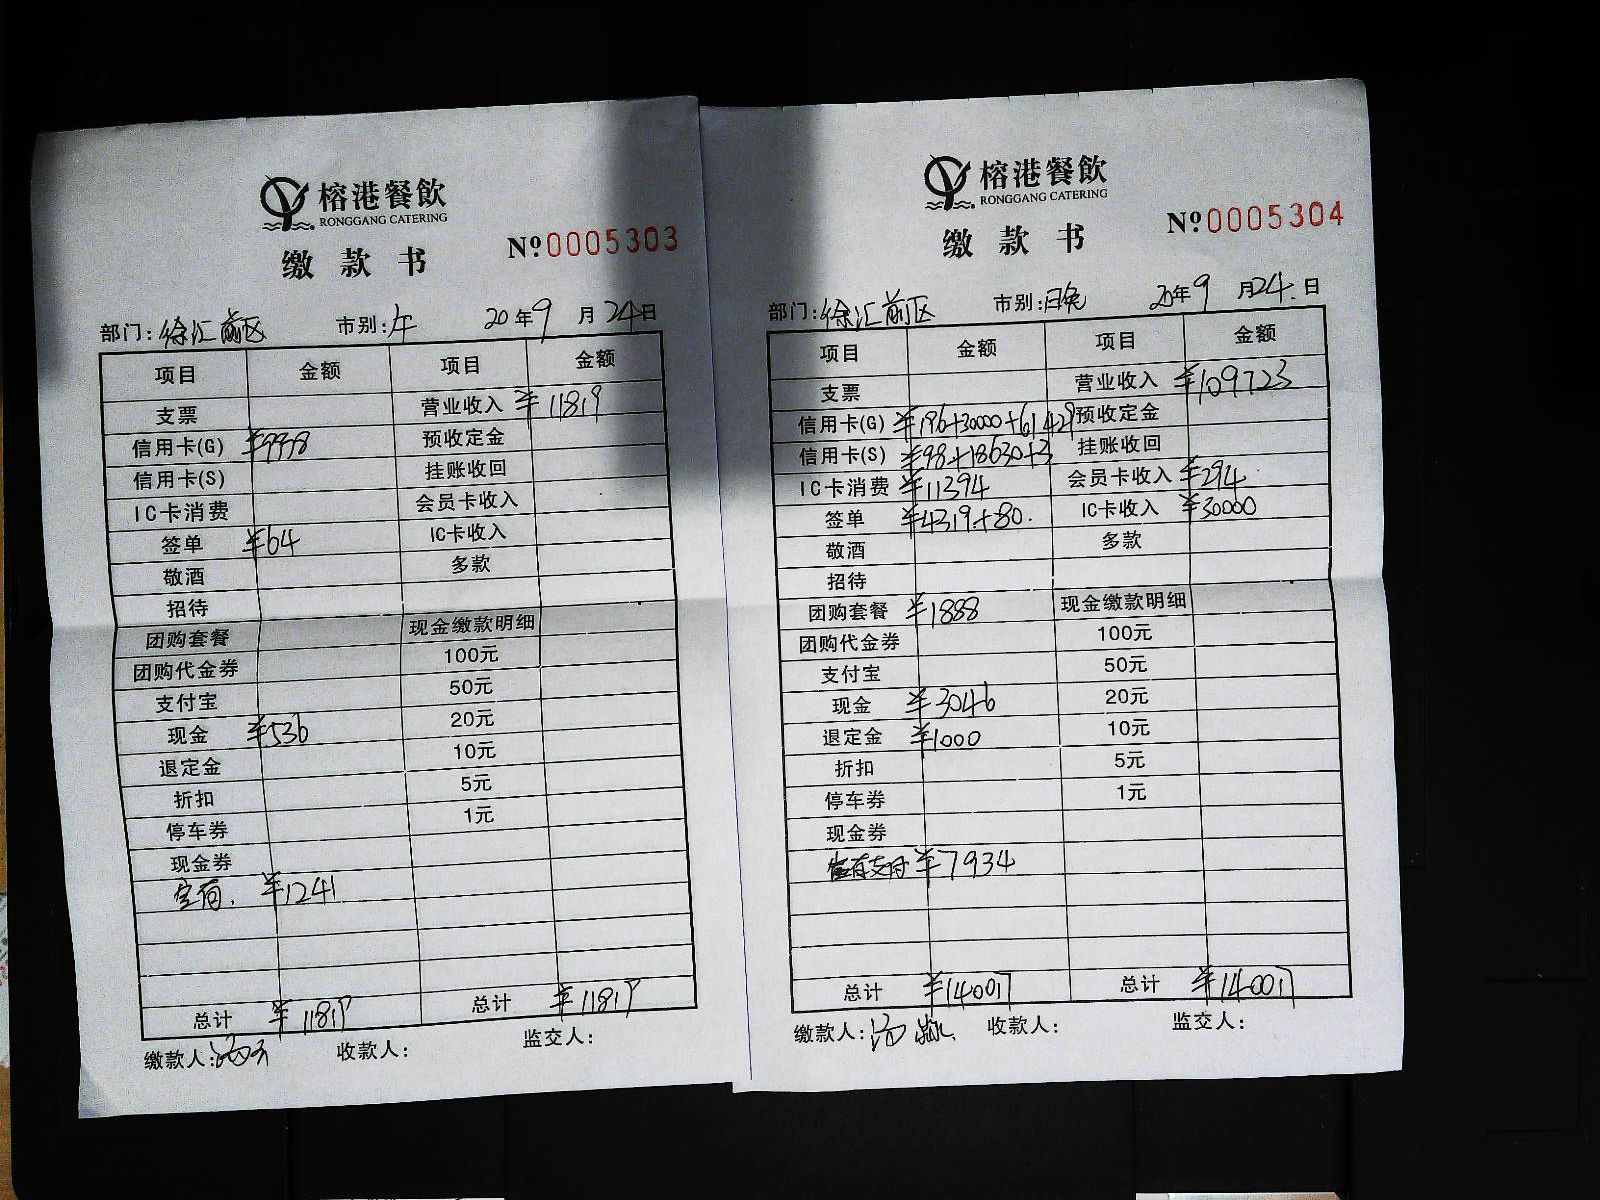 榕港餐飲
RONGGANG CATERING
缴款书 №0005303
部门:徐汇前区 市别:午 20年9月24日
项目 金额 项目 金额
支票 营业收入 ¥11819
信用卡(G) ¥9998 预收定金
信用卡(S) 挂账收回
IC卡消费 会员卡收入
签单 ¥64 IC卡收入
敬酒 多款
招待
团购套餐 现金缴款明细
团购代金券 100元
支付宝 50元
现金 ¥536 20元
退定金 10元
折扣 5元
停车券 1元
现金券
¥1241
总计 ¥11819 总计 ¥11819
缴款人: 收款人: 监交人:
榕港餐飲
RONGGANG CATERING
缴款书 №0005304
部门:徐汇前区 市别:晚 20年9月24.日
项目 金额 项目 金额
支票 营业收入 ¥109723
信用卡(G) ¥196+30000+61429 预收定金
信用卡(S) ¥98+18630+3 挂账收回
IC卡消费 ¥11394 会员卡收入 ¥294
签单 ¥4319+80. IC卡收入 ¥30000
敬酒 多款
招待
团购套餐 ¥1888 现金缴款明细
团购代金券 100元
支付宝 50元
现金 ¥3046 20元
退定金 ¥1000 10元
折扣 5元
停车券 1元
现金券
支付 ¥7934
总计 ¥140017 总计 ¥140017
缴款人:汤 收款人: 监交人: